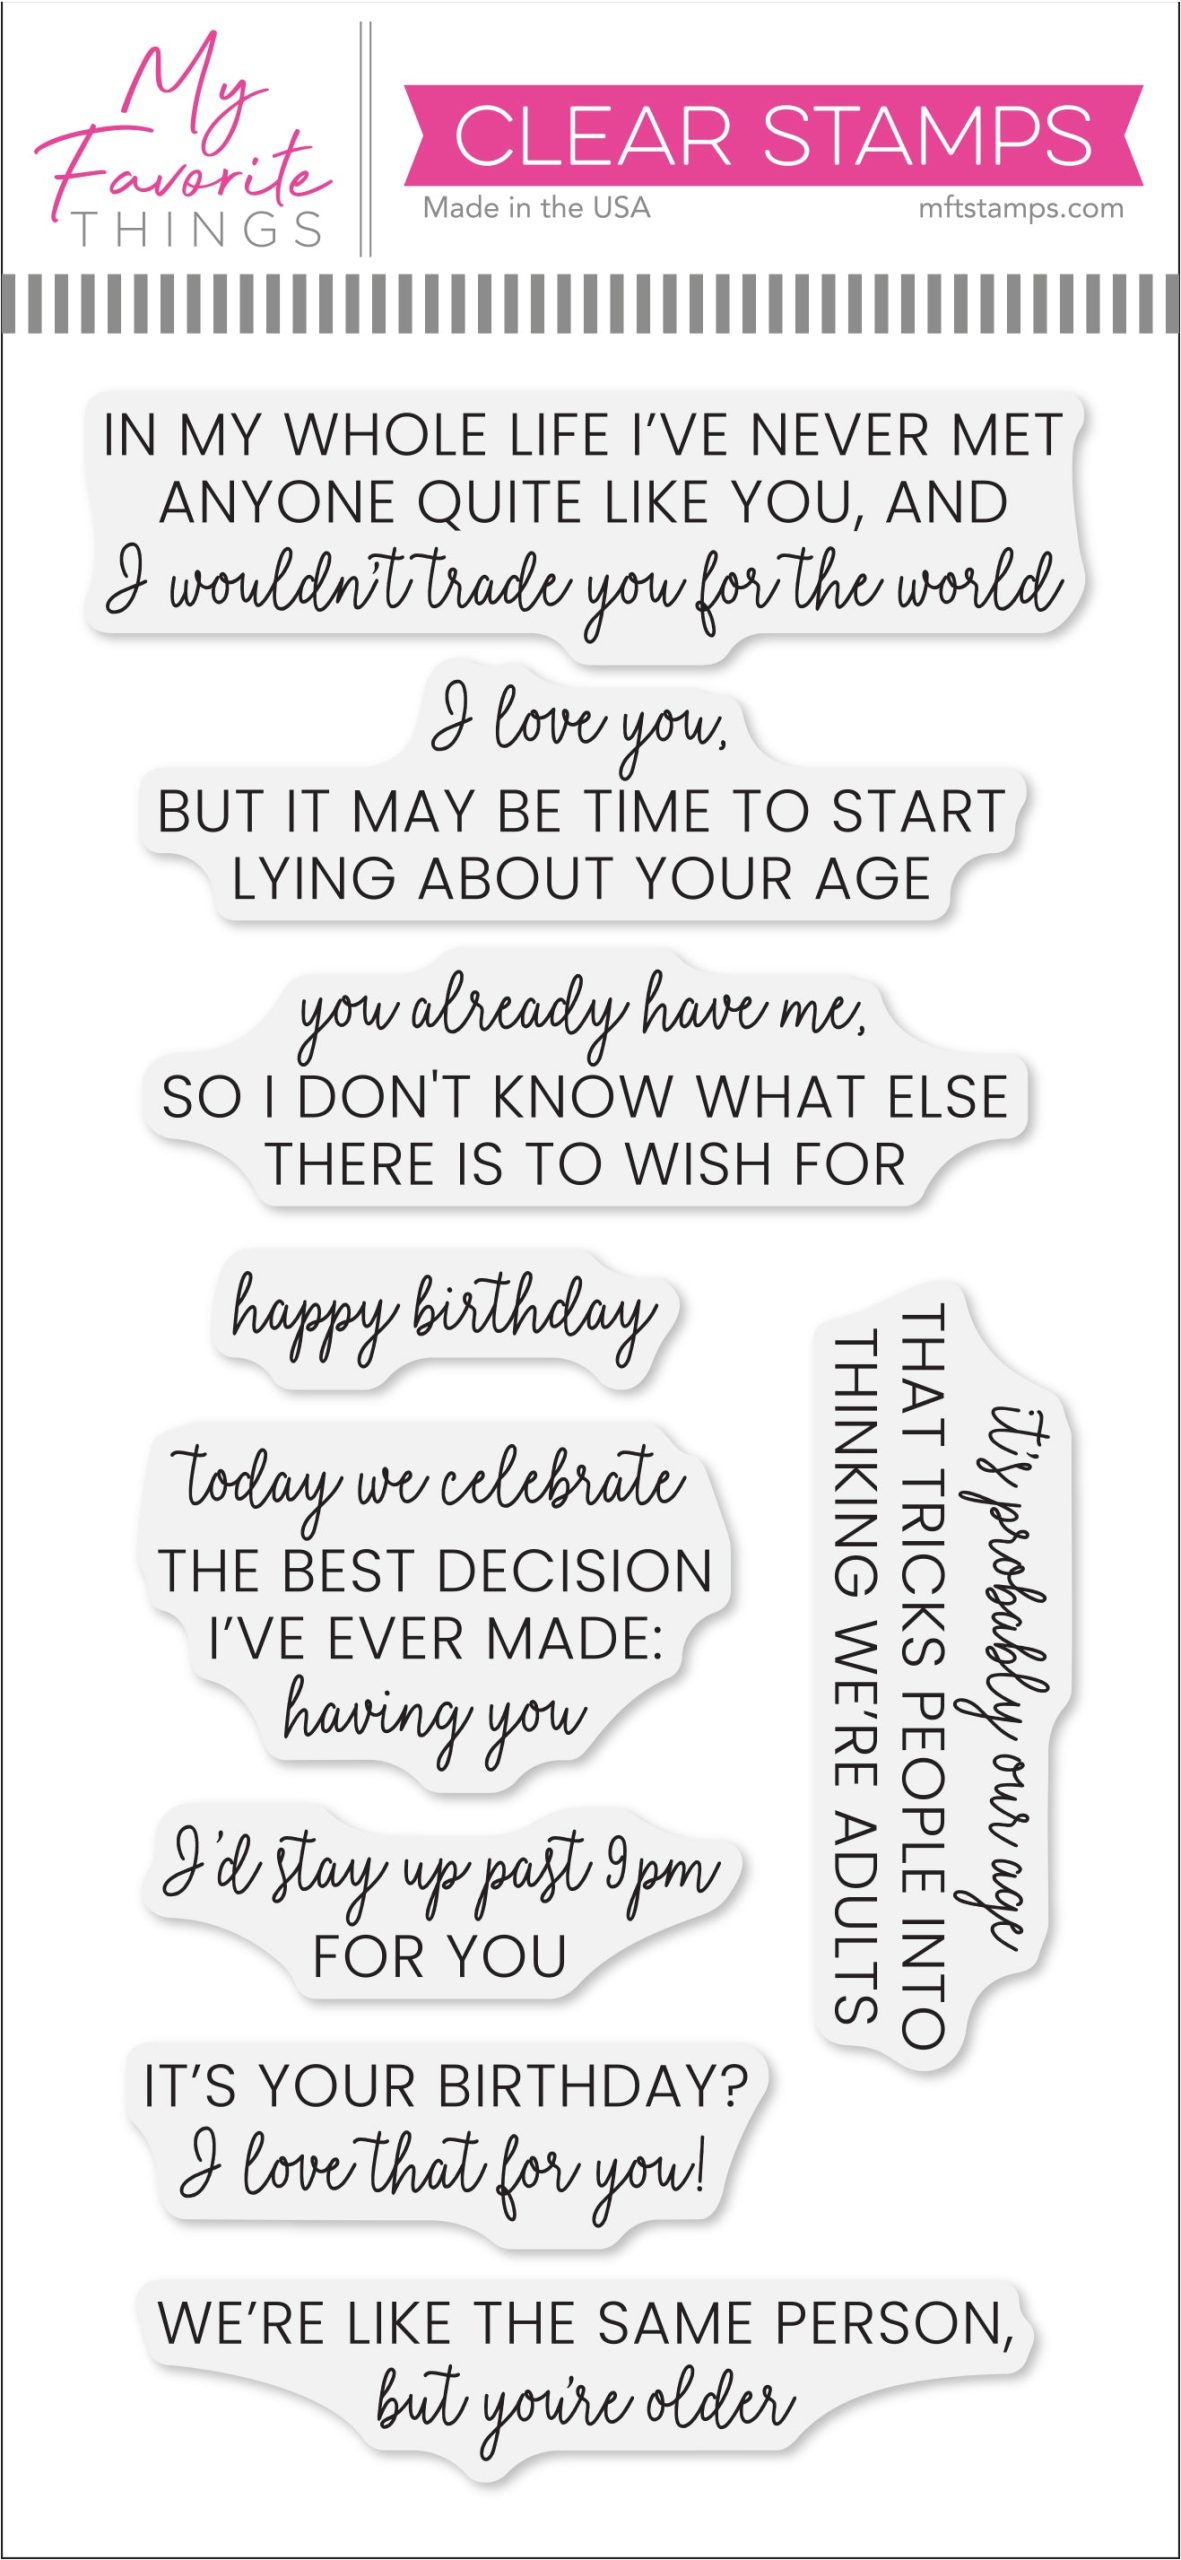 My
Favorite
THINGS
CLEAR STAMPS
Made in the USA
mftstamps.com
IN MY WHOLE LIFE I'VE NEVER MET
ANYONE QUITE LIKE YOU, AND
I wouldn't trade you for the world
I love you,
BUT IT MAY BE TIME TO START
LYING ABOUT YOUR AGE
you already have me,
SO I DON'T KNOW WHAT ELSE
THERE IS TO WISH FOR
happy birthday
today we celebrate
THE BEST DECISION
I'VE EVER MADE:
having you
it's probably our age
THAT TRICKS PEOPLE INTO
THINKING WE'RE ADULTS
I'd stay up past 9pm
FOR YOU
IT'S YOUR BIRTHDAY?
I love that for you!
WE'RE LIKE THE SAME PERSON,
but you're older